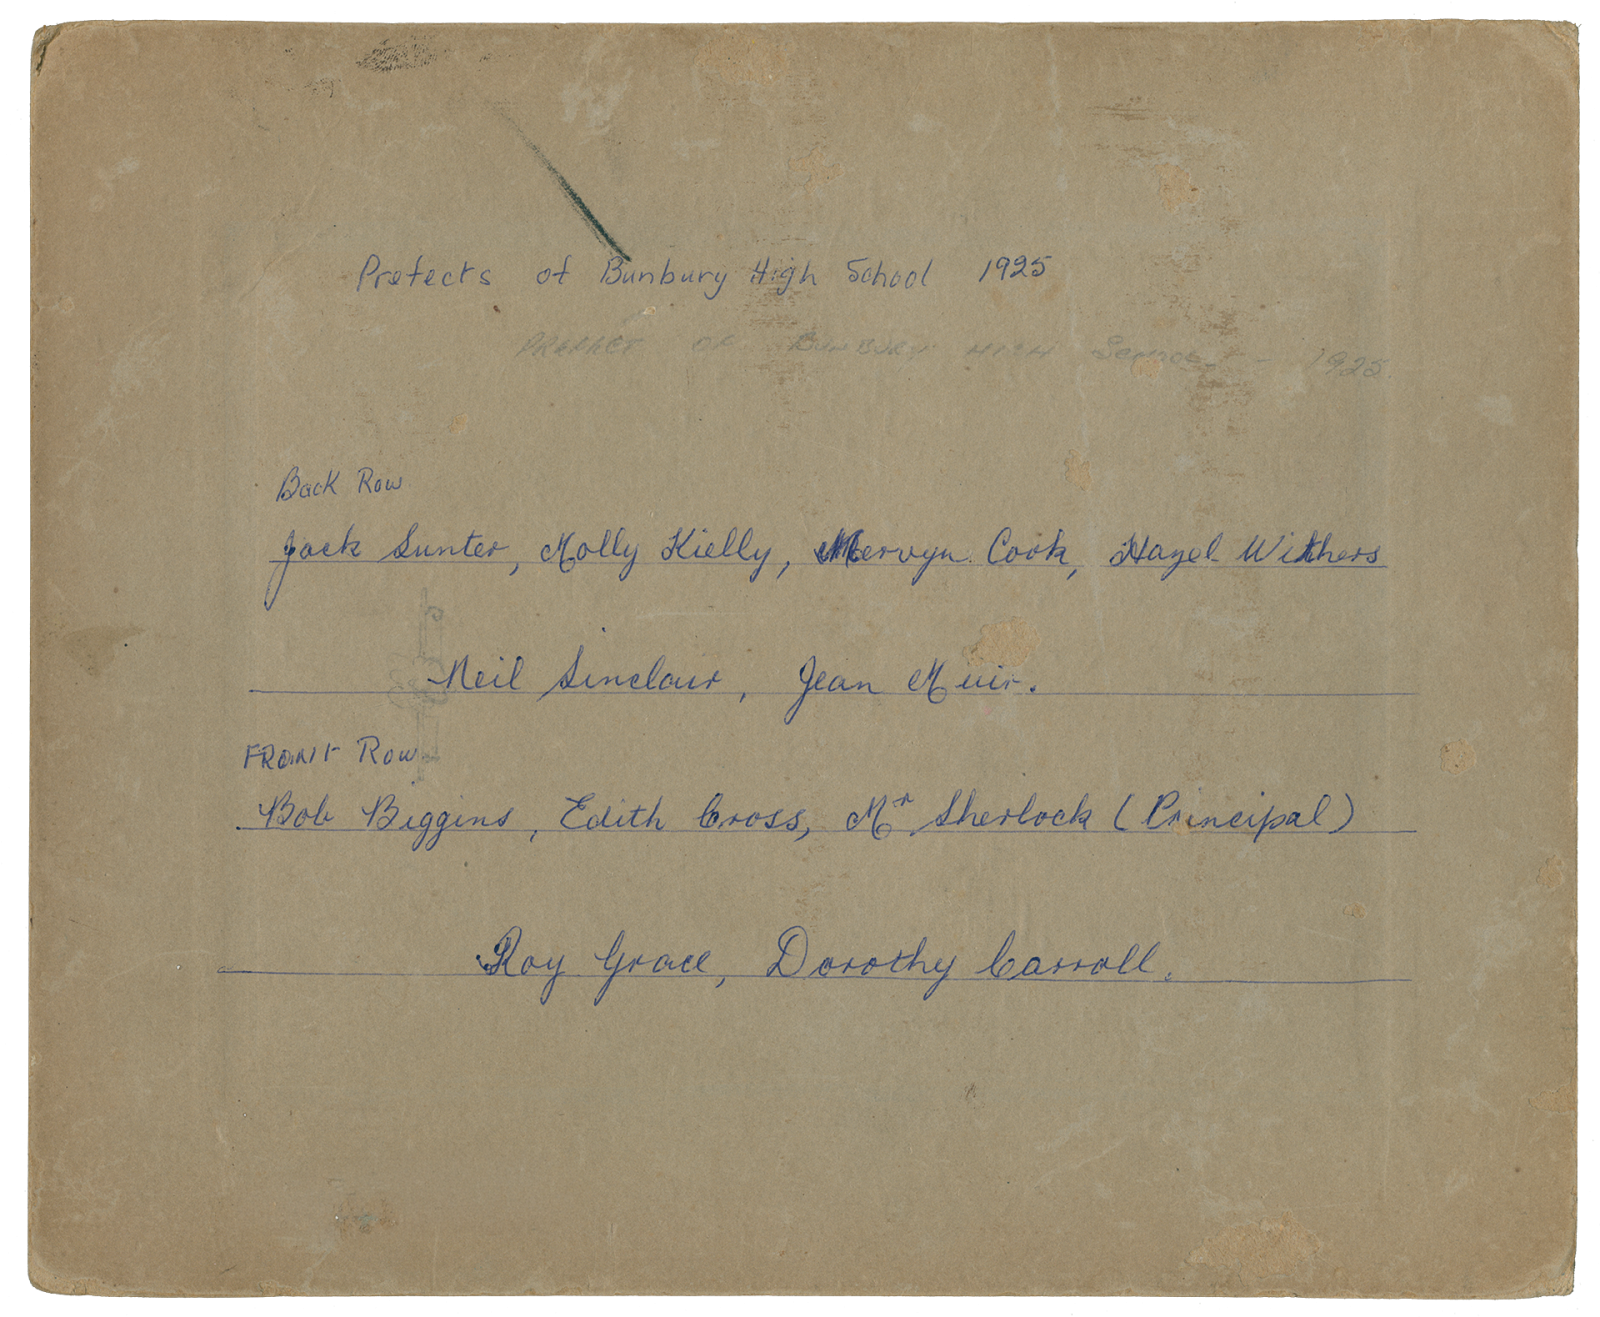 Prefects of Bunbury High School 1925
PREFECT OF BUNBURY HIGH School - 1925.
Back Row
Jack Sunter, Molly Kielly, Mervyn Cook, Hazel Withers
Neil Sinclair, Jean Muir.
FRONT Row
Bob Biggins, Edith Cross, Mr Sherlock (Principal)
Roy Grace, Dorothy Carroll.